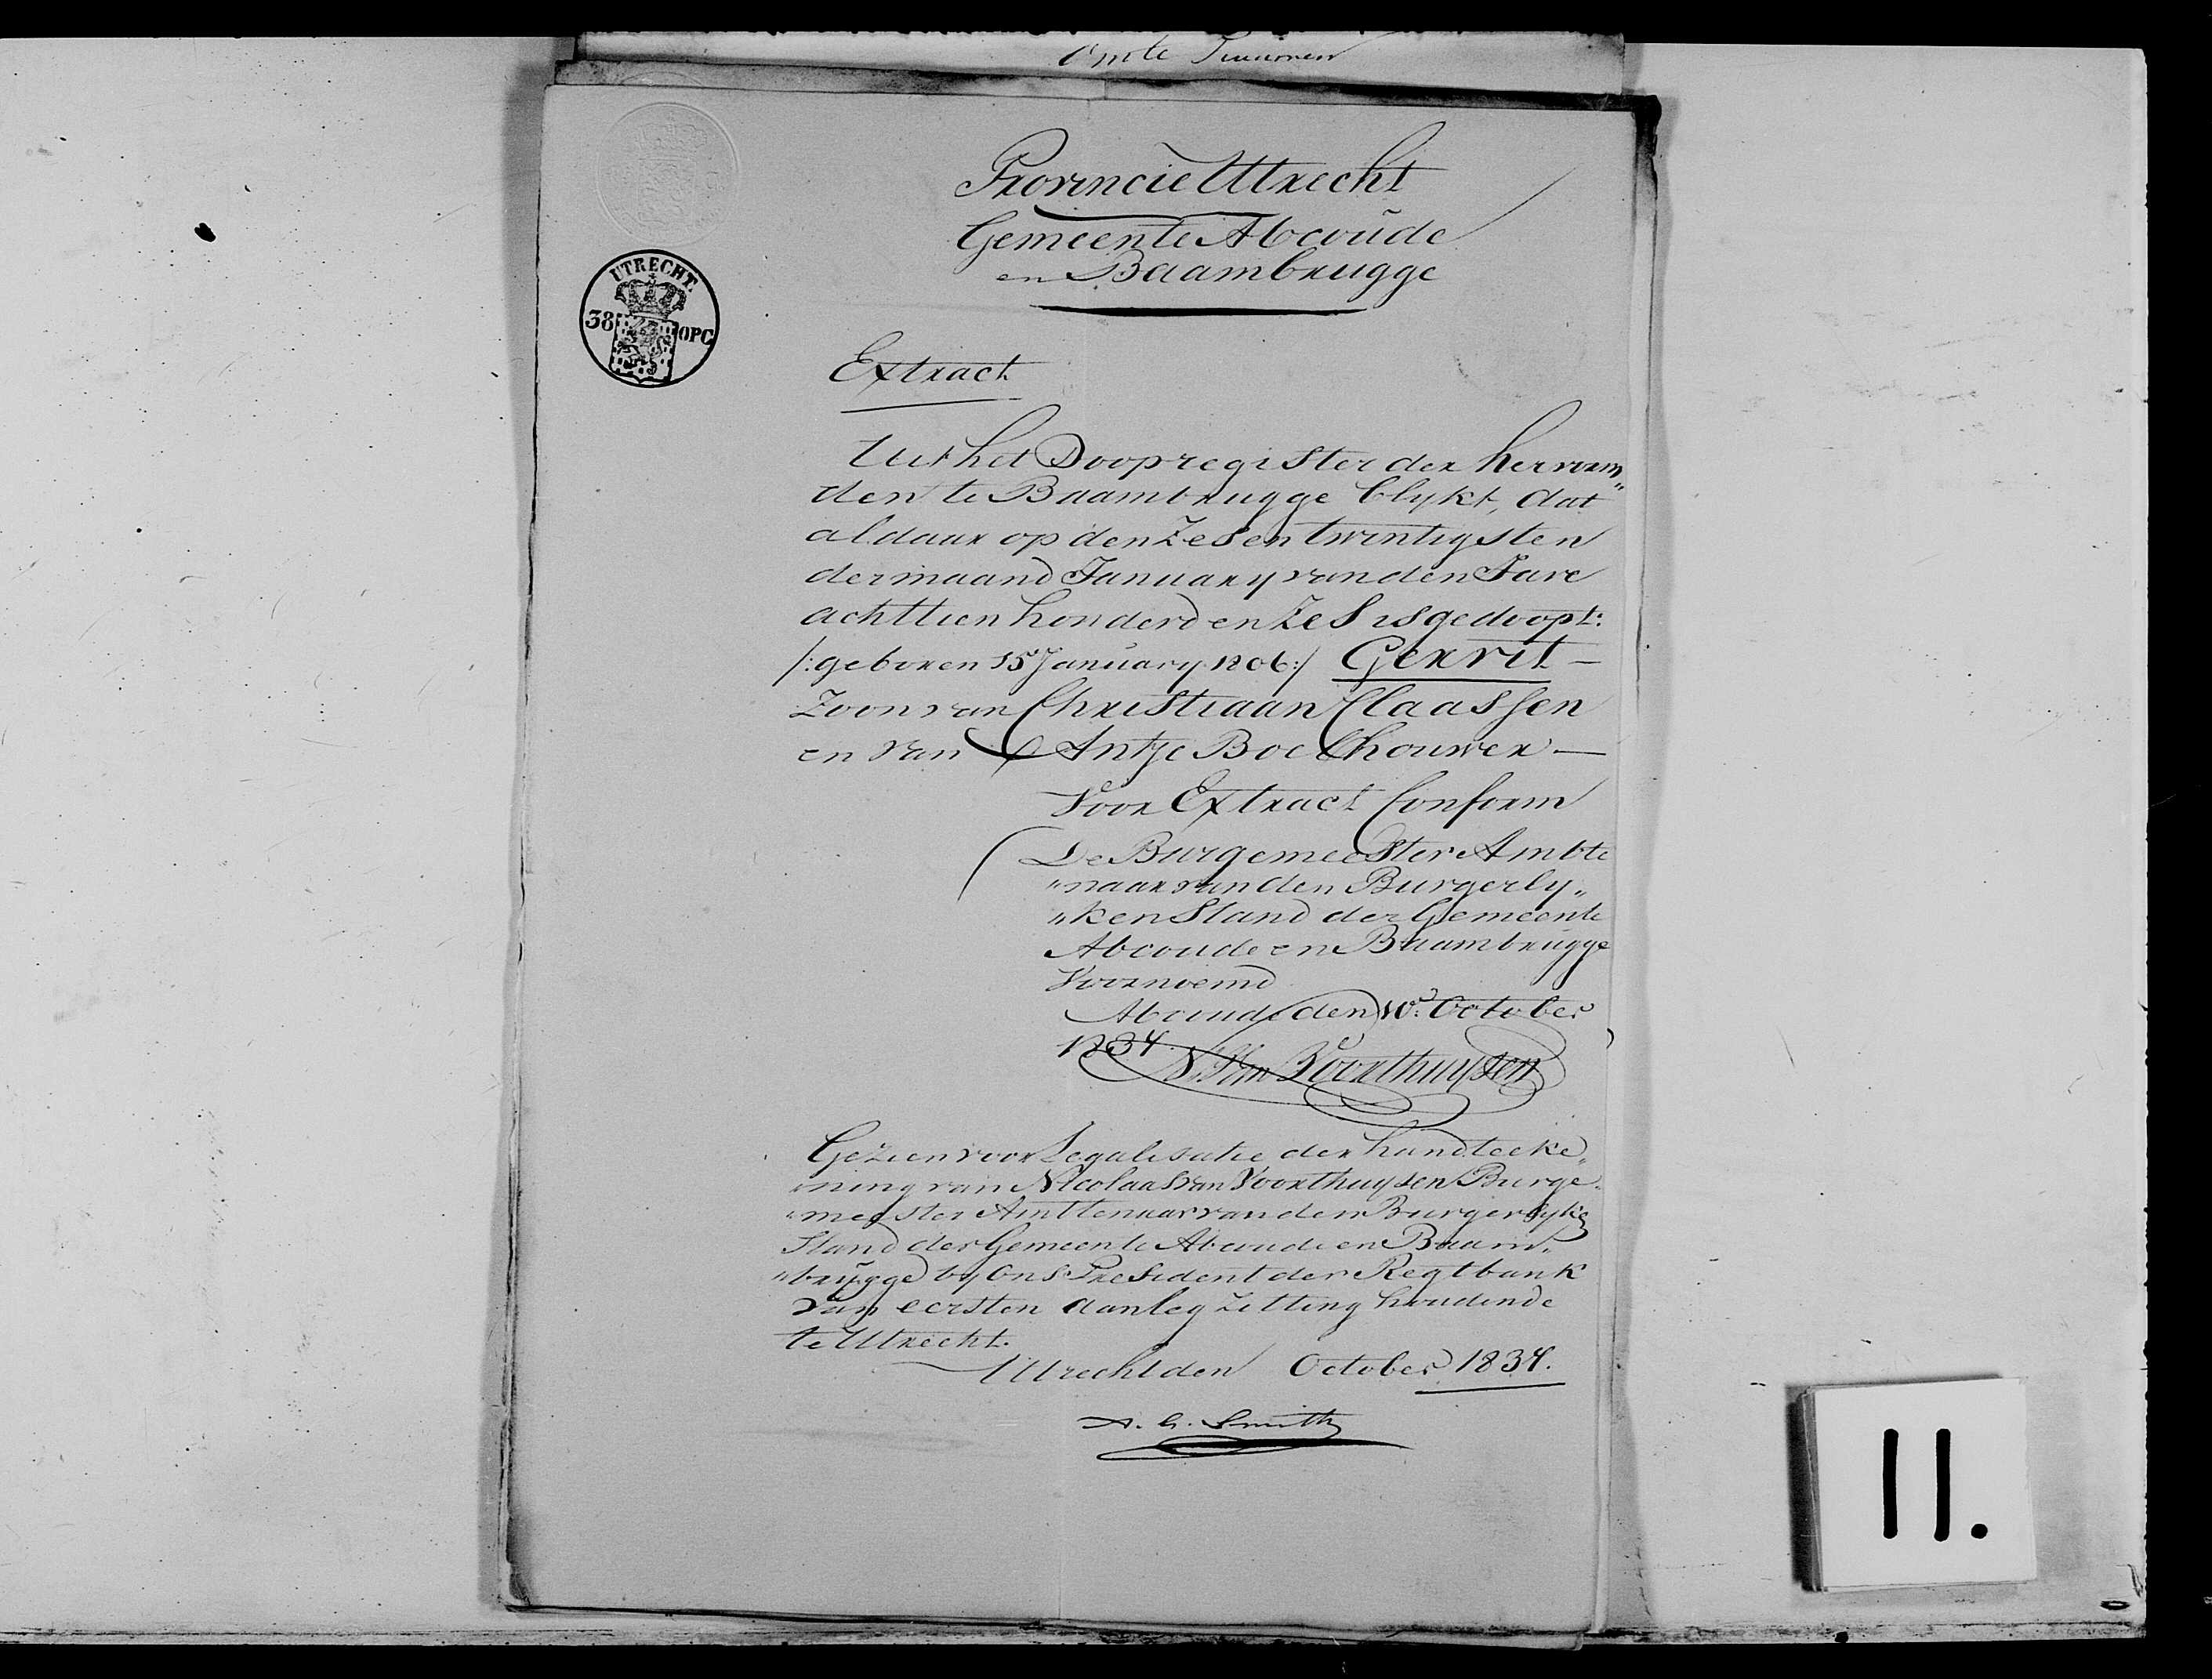 Provincie Utrecht
Gemeente Abcoude
en Baambrugge
UTRECHT.
38 OPC
Extract
Uit het Doopregister der hervorm„
den te Baambrugge blykt, dat
aldaar op den Zes en twintigsten
der maand January van den Jare
achttien honderd en Zes is gedoopt:
/:geboren 15 January 1806:/ Gerrit —
Zoon van Christiaan Claassen
en van Antje Boelhouwer —
Voor Extract Conform
De Burgemeester Ambte
„naar van den Burgerly„
„ken Stand der Gemeente
Abcoude en Baambrugge
Voornoemd
Abcoude den 10e October
1834.
N. Van Voorthuysen
Gezien voor Legalisatie der handteeke„
„ning van Nicolaas van Voorthuysen Burge„
„meester Amttenaar van den Burgerlyke
Stand der Gemeente Abcoude en Baam„
„brugge by Ons President der Regtbank
van eersten aanleg Zitting houdende
te Utrecht.
Utrecht den October 1834.
A. G. Smith
11.